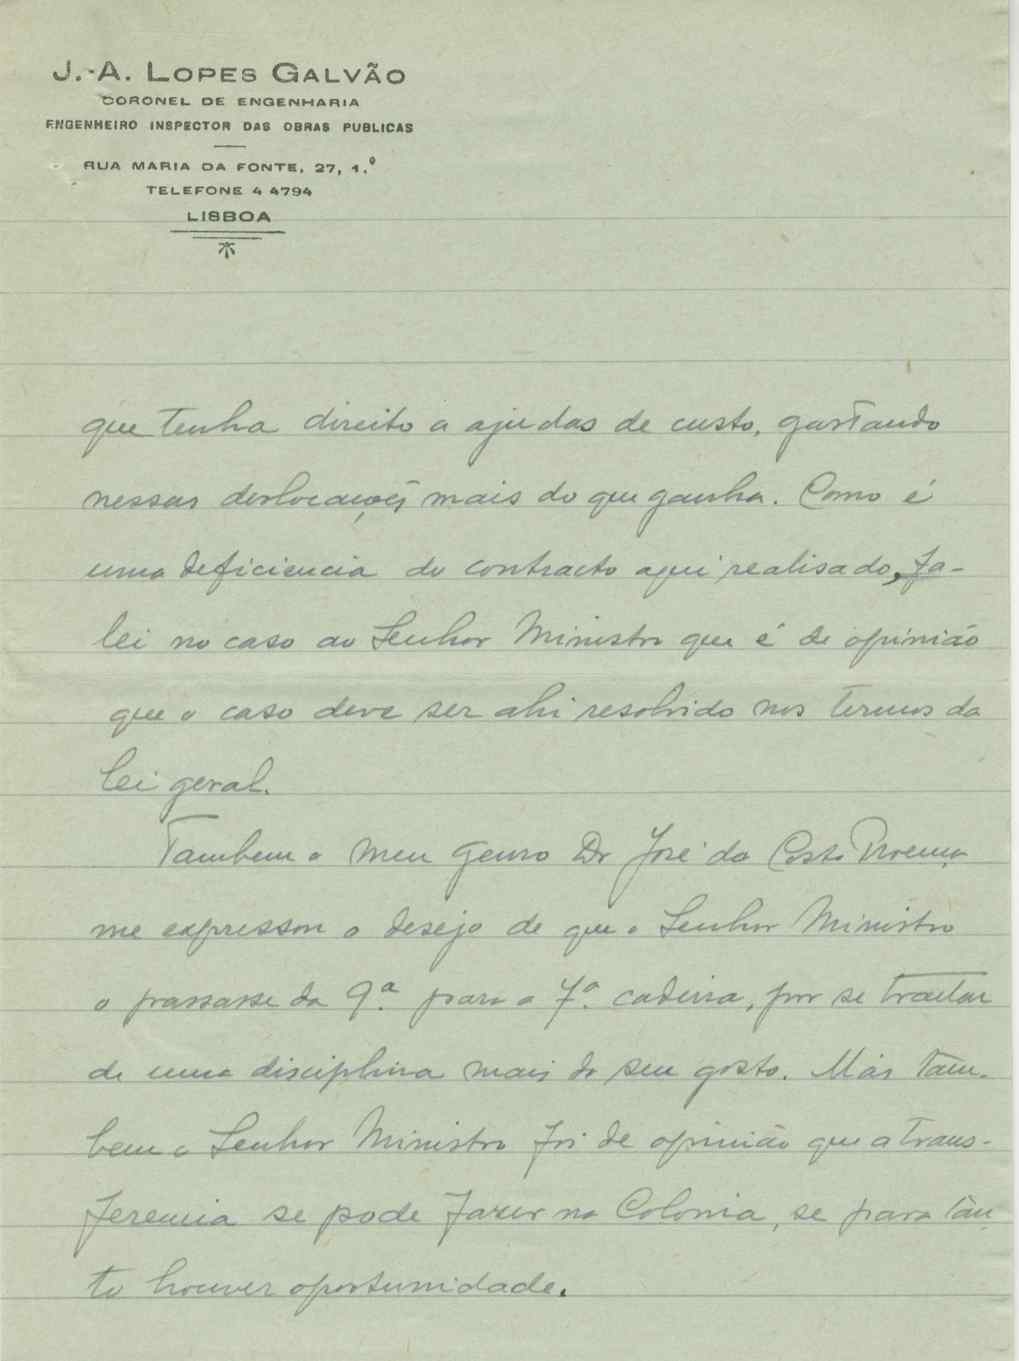 J.-A. LOPES GALVÃO
CORONEL DE ENGENHARIA
ENGENHEIRO INSPECTOR DAS OBRAS PUBLICAS
RUA MARIA DA FONTE, 27, 1.º
TELEFONE 4 4794
LISBOA
que tenha direito a ajudas de custo, gastando
nessas deslocações mais do que ganha. Como é
uma deficiencia do contracto aqui realisado, fa-
lei no caso ao Senhor Ministro que é de opinião
que o caso deve ser ahi resolvido nos termos da
lei geral.
Tambem o meu genro Dr José da Costa Proença
me expressou o desejo de que o Senhor Ministro
o passasse da 9.ª para a 7.ª cadeira, por se tratar
de uma disciplina mais do seu gosto. Mas tam-
bem o Senhor Ministro foi de opinião que a trans-
ferencia se pode fazer na Colonia, se para tan
to houver oportunidade.